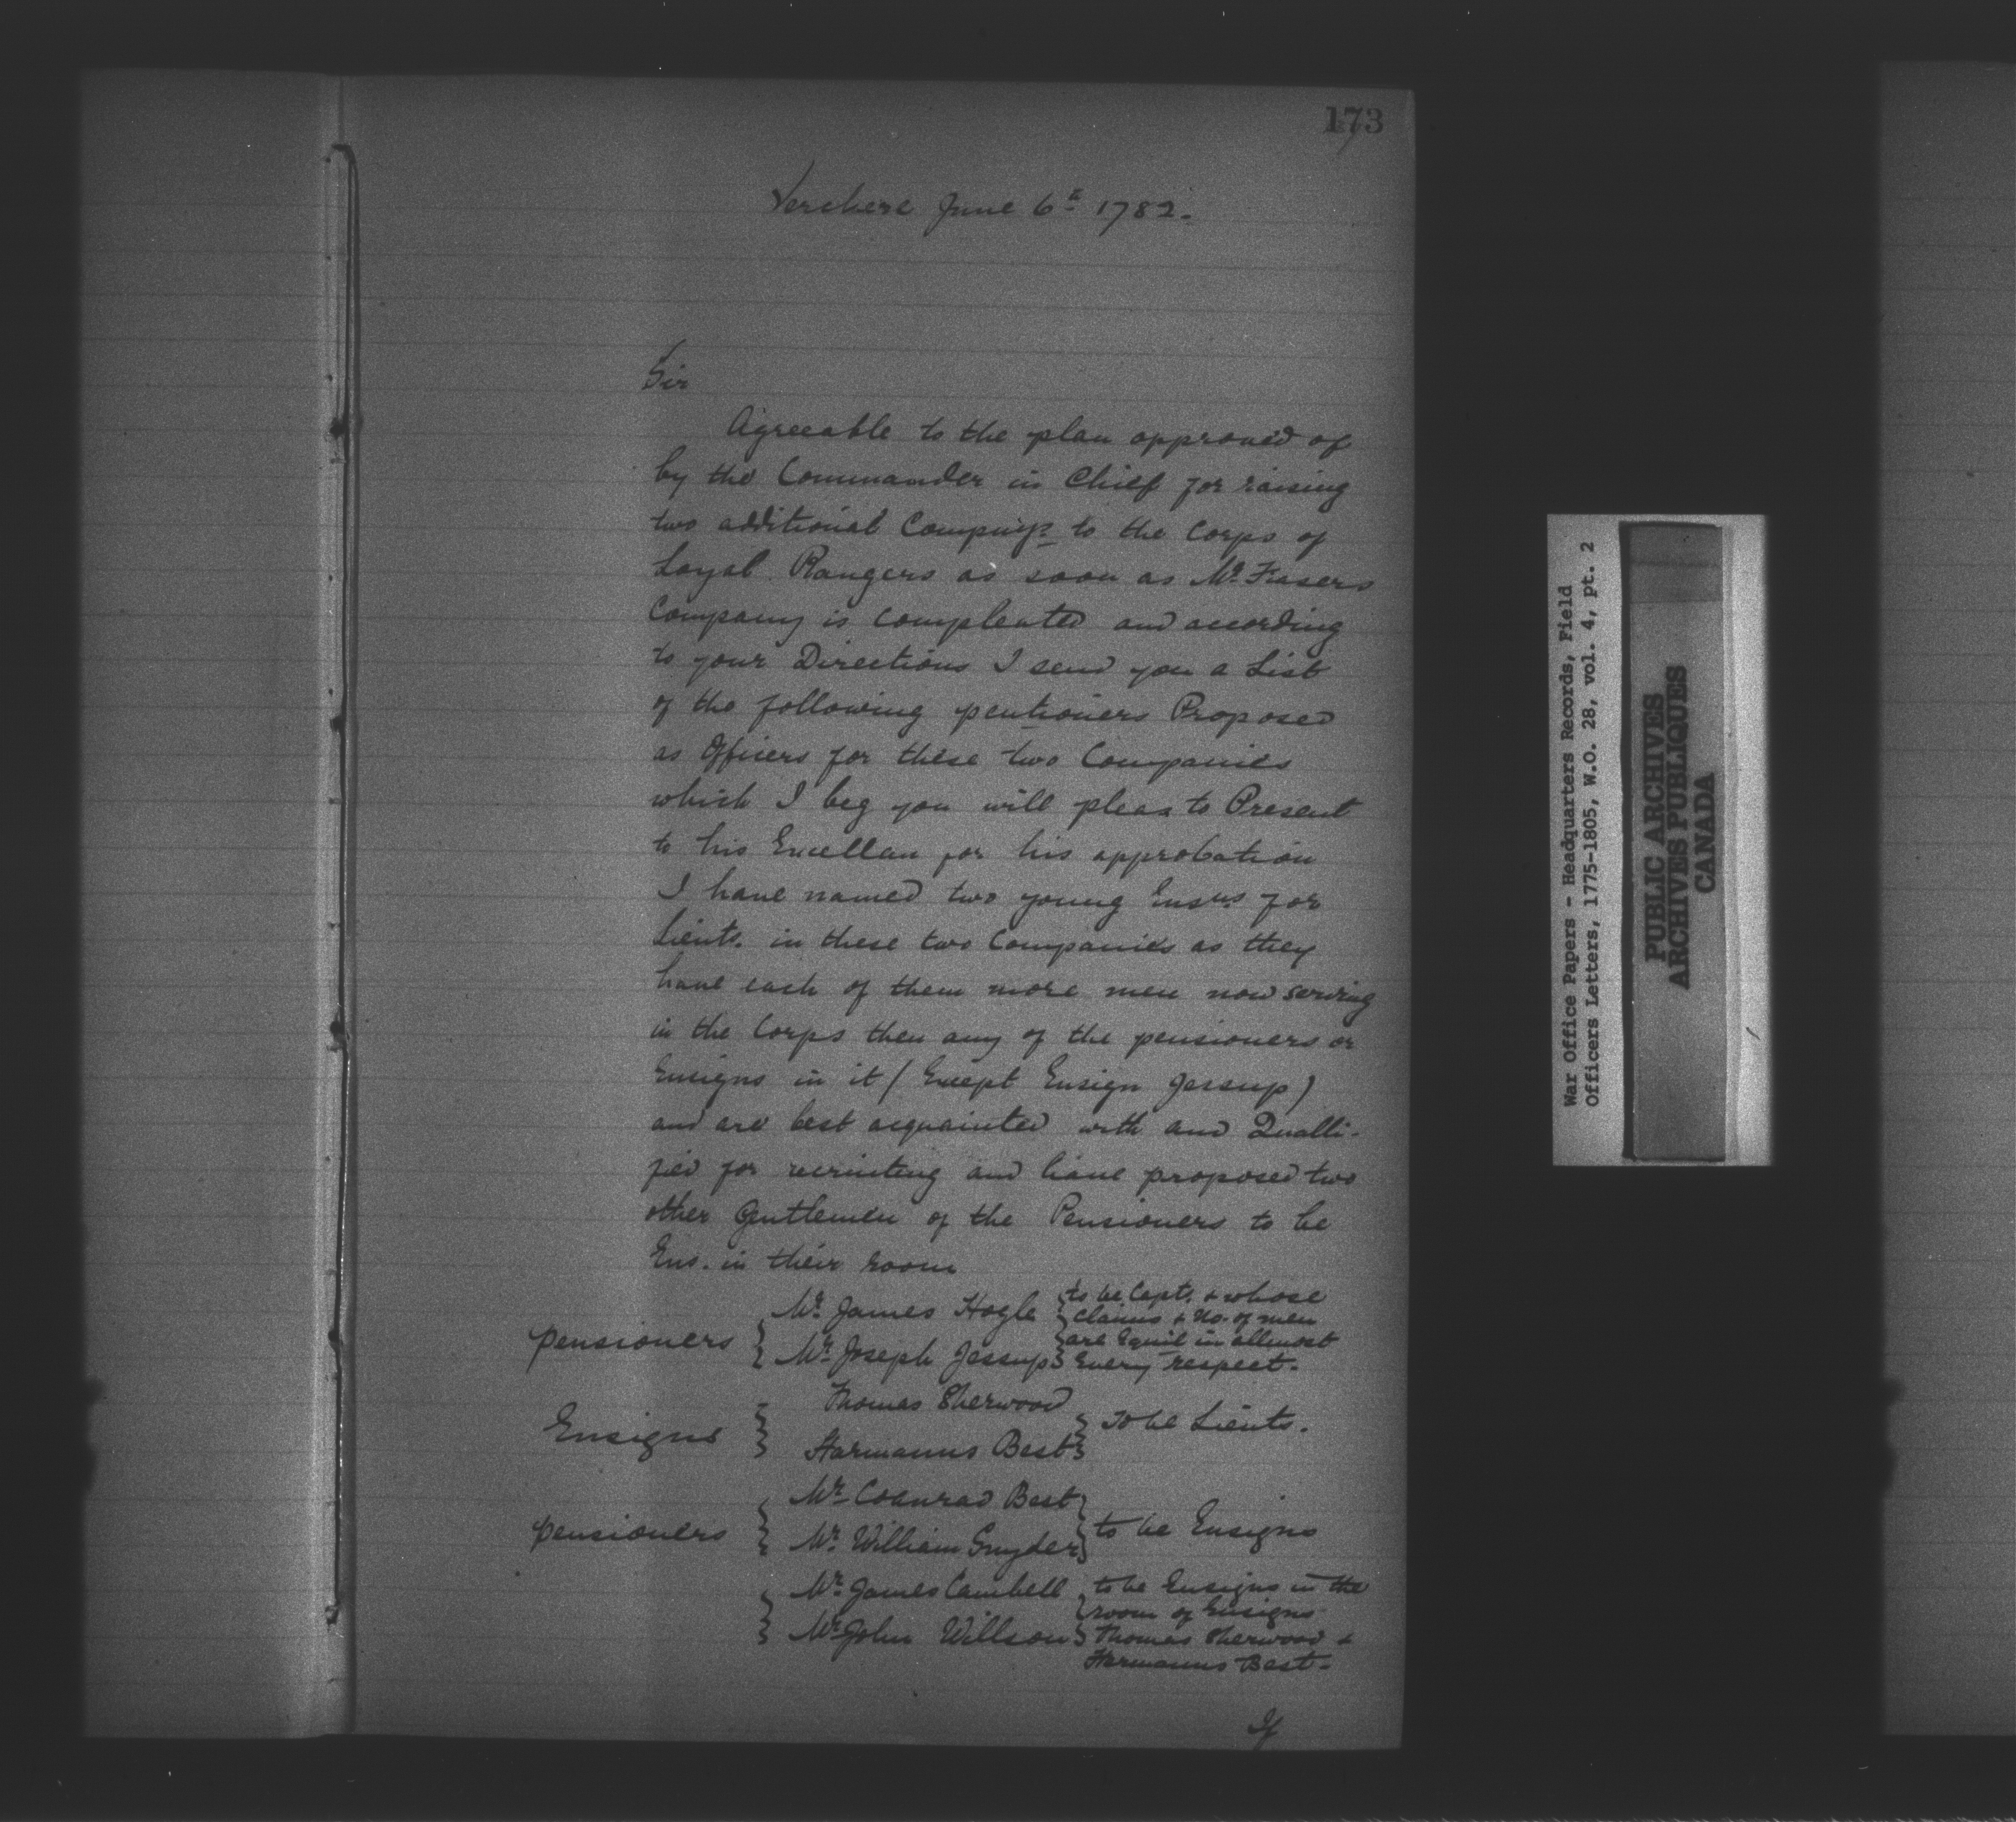 173
Verchere June 6th 1782.
Sir
Agreeable to the plan approved of
by the Commander in Chief for raising
two additional Companys to the Corps of
Loyal Rangers as soon as Mr. Frasers
Company is compleated and according
to your Directions I send you a List
of the following pentioners Proposed
as Officers for these two Companies
which I beg you will pleas to Present
to his Excellan for his approbation
I have named two young Ensns for
Lieuts. in these two Companies as they
have each of them more men now serving
in the Corps then any of the pensioners or
Ensigns in it (Except Ensign Jessup)
and are best acquainted with and Qualli-
fied for recruiting and have proposed two
other Gentlemen of the Pensioners to be
Ens. in their room
pensioners { Mr. James Hogle
Mr. Joseph Jessup } to be Capt. & whose
claims & No. of men
are Equil in allmost
Every respect.
Ensigns { Thomas Sherwood
Harmanus Best } To be Lieuts.
pensioners { Mr. Coanrad Best
Mr. William Snyder } to be Ensigns
{ Mr. James Cambell
Mr. John Willson } to be Ensigns in the
room of Ensigns
Thomas Sherwood &
Harmanus Best.
If
War Office Papers - Headquarters Records, Field
Officers Letters, 1775-1805, W.O. 28, vol. 4, pt. 2
PUBLIC ARCHIVES
ARCHIVES PUBLIQUES
CANADA